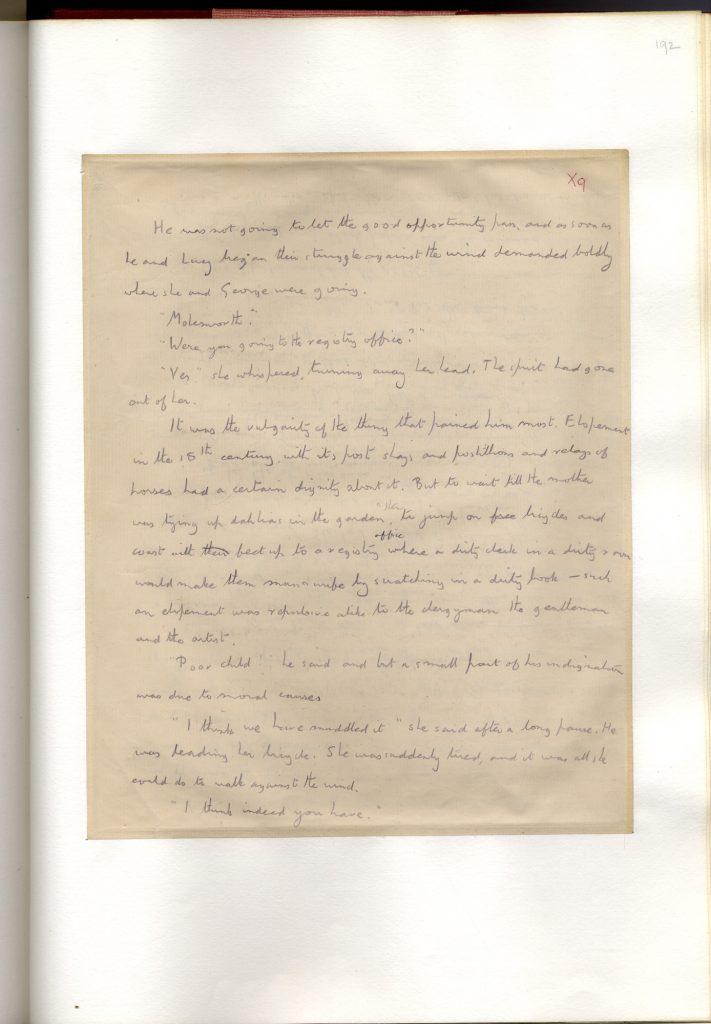 192
X9
He was not going to let the good opportunity pass, and as soon as
he and Lucy began their struggle against the wind demanded boldly
where she and George were going.
"Molesworth."
"Were you going to the registry office?"
"Yes" she whispered, turning away her head. The spirit had gone
out of her.
It was the vulgarity of the thing that pained him most. Elopement
in the 18th century, with its post shays and postilhons and relays of
horses had a certain dignity about it. But to wait till the mother
was tying up dahlias in the garden, then to jump on free bicycles and
coast with their feet up to a registry office where a dirty clerk in a dirty room
would make them man & wife by scratching in a dirty book — such
an elopement was repulsive alike to the clergyman the gentleman
and the artist.
"Poor child!" he said and but a small part of his indignation
was due to moral causes
"I think we have muddled it" she said after a long pause. He
was leading her bicycle. She was suddenly tired, and it was all she
could do to walk against the wind.
"I think indeed you have."